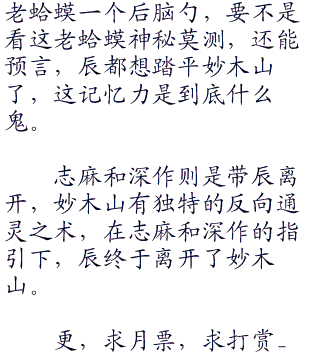 老蛤蟆一个后脑勺，要不是
看这老蛤蟆神秘莫测，还能
预言，辰都想踏平妙木山
了，这记忆力是到底什么
鬼。
志麻和深作则是带辰离
开，妙木山有独特的反向通
灵之术，在志麻和深作的指
引下，辰终于离开了妙木
山。
更，求月票，求打赏_